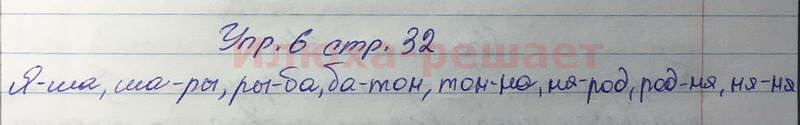 Упр. 6 стр. 32
илюха-решает
Я-ша, ша-ры, ры-ба, ба-тон, тон-на, на-род, род-ня, ня-ня